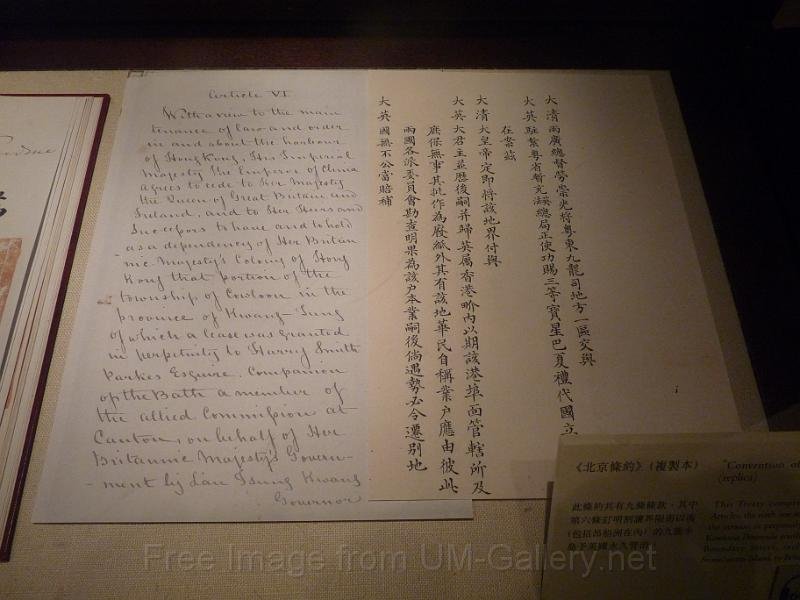 Article VI
With a view to the main
tenance of law and order
in and about the harbour
of Hong Kong, His Imperial
Majesty the Emperor of China
agrees to cede to Her Majesty
the Queen of Great Britain and
Ireland, and to Her Heirs and
Successors to have and to hold
as a dependency of Her Britan
nic Majesty's Colony of Hong
Kong that portion of the
township of Cowloon in the
province of Kwang-Tung
of which a lease was granted
in perpetuity to Harry Smith
Parkes Esquire, Companion
of the Bath a member of
the allied Commission at
Canton, on behalf of Her
Britannic Majesty's Govern-
ment by Lau Tsung Kwang
Governor
大清兩廣總督勞崇光將粵東九龍司地方一區交與
大英駐紮粵省暫充英總局正使功賜三等寶星巴夏禮代國立
在案茲
大清大皇帝定即將該地界付與
大英大君主並歷後嗣并歸英屬香港界內以期該港埠面管轄所及
庶保無事其批作為廢紙外其有該地華民自稱業戶應由彼此
兩國各派委員會勘查明果為該戶本業嗣後倘遇勢必令遷別地
大英國無不公當賠補
《北京條約》(複製本)
此條約共有九條條款,其中
第六條訂明割讓界限街以南
(包括昂船洲在內)的九龍半
島予英國永久管治。
"Convention of
(replica)
This Treaty
Articles, the sixth
Kowloon Peninsula
Boundary Street,
Stonecutters Island) to
Free Image from UM-Gallery.net